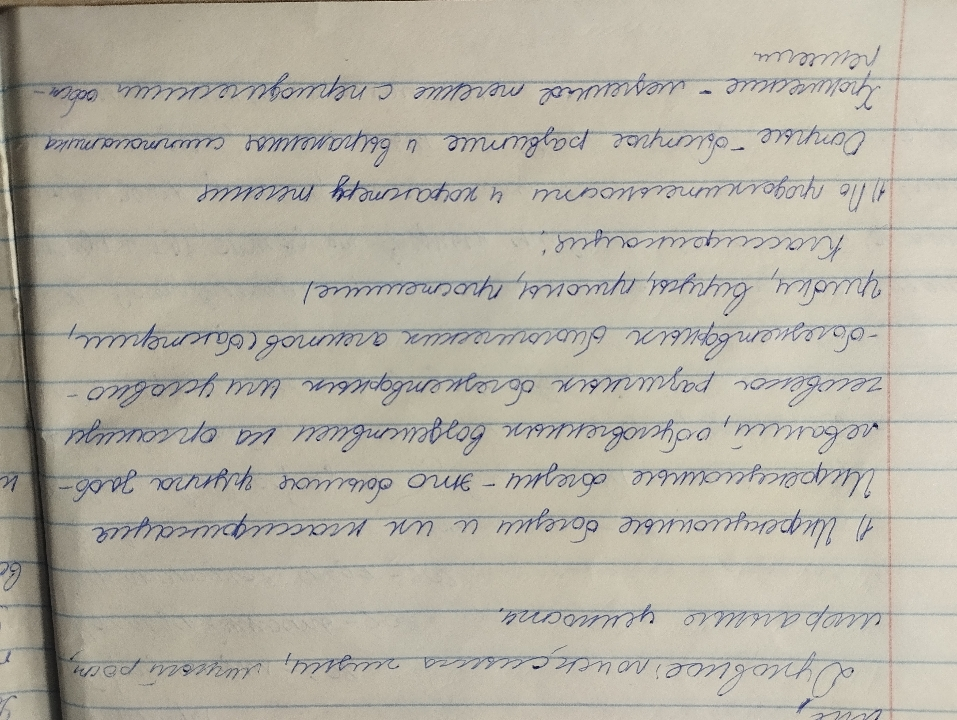 Духовное: поиск смысла жизни, личный рост,
моральные ценности.
1) Инфекционные болезни и их классификация
Инфекционные болезни - это большая группа забо-
леваний, обусловленных воздействием на организм
человека различных болезнетворных или условно-
-болезнетворных биологических агентов (бактерии,
грибы, вирусы, прионы, простейшие)
Классификация:
1) По продолжительности и характеру течения
Острые - быстрое развитие и выраженная симптоматика
Хронические - медленное течение с периодическими обост-
рениями